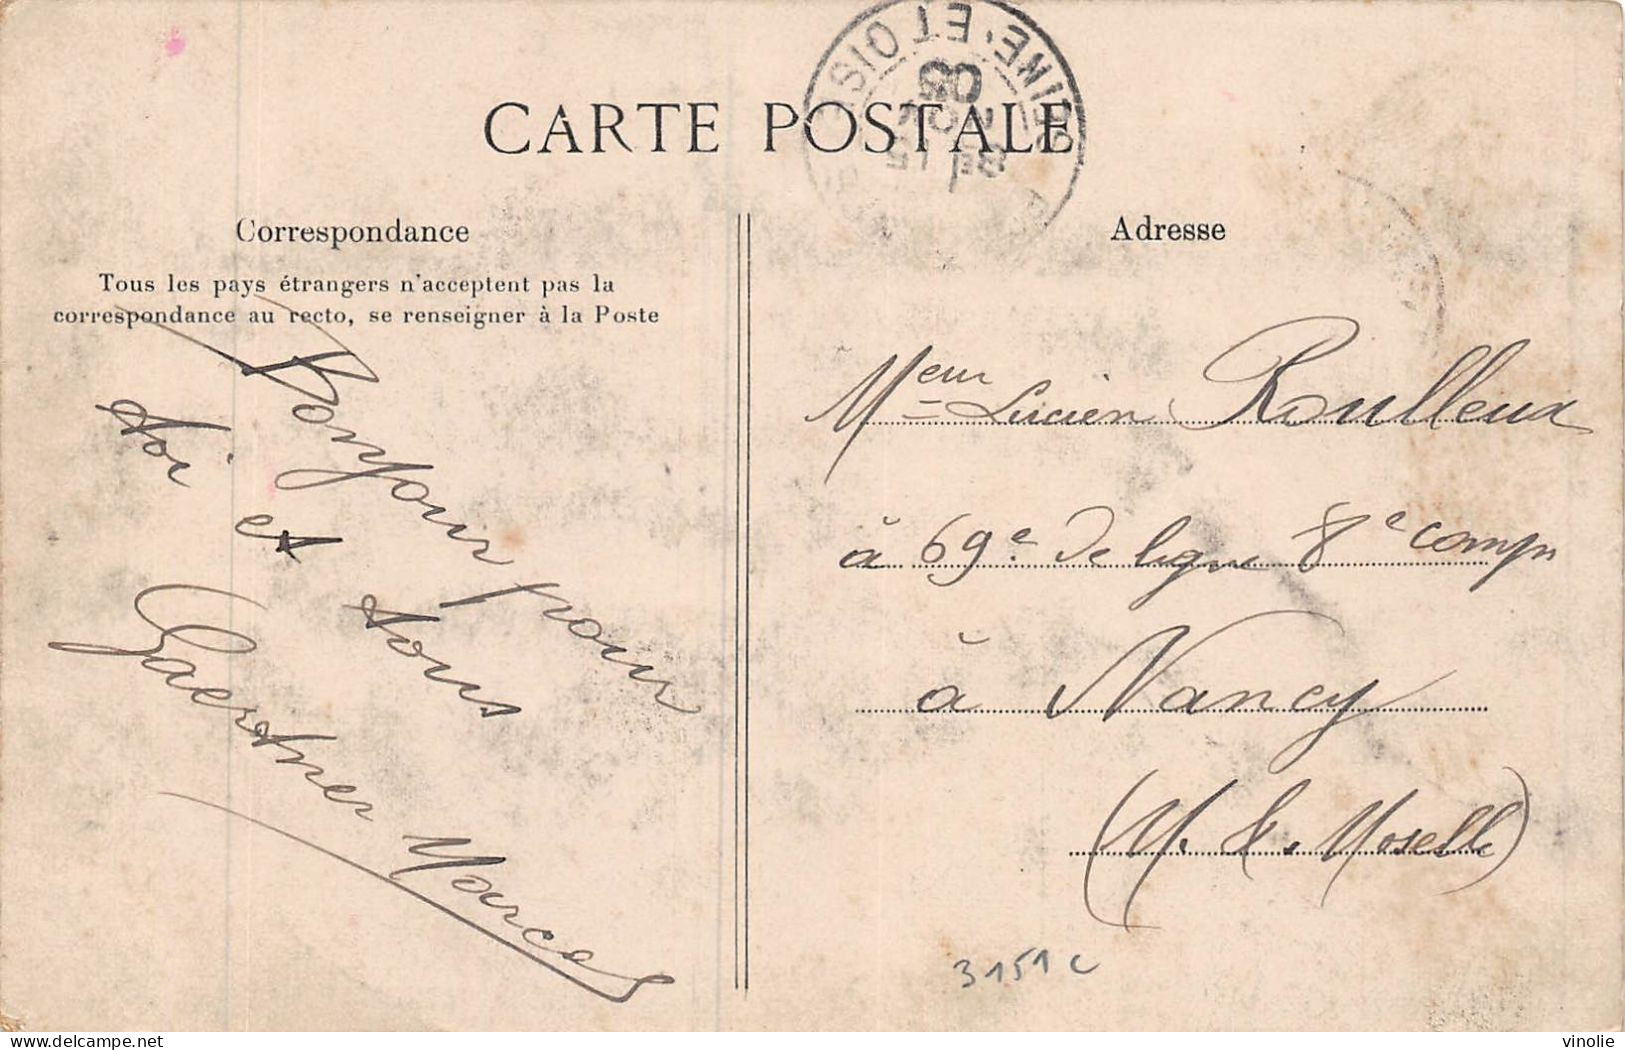 CARTE POSTALE
SEINE-ET-OIS
Correspondance
Tous les pays étrangers n'acceptent pas la
correspondance au recto, se renseigner à la Poste
Bonjour pour
toi et tous
Gaertner
Adresse
Meur Lucien Roulleux
à 69e de ligne 8e comp
à Nancy
(M. & Moselle)
3151c
delcampe.net
vinolie